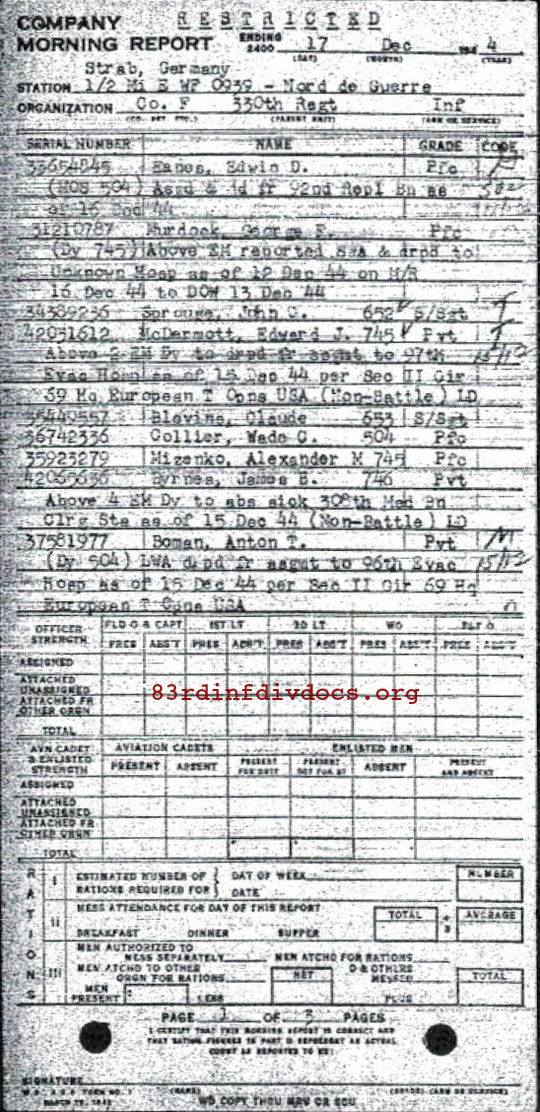 RESTRICTED
COMPANY
MORNING REPORT ENDING 2400 17 Dec 194 4
(DAY) (MONTH) (YEAR)
Strab, Germany
STATION 1/2 Mi E WF 0939 - Nord de Guerre
ORGANIZATION Co. F 330th Regt Inf
(CO. DET. ETC.) (PARENT UNIT) (ARM OR SERVICE)
SERIAL NUMBER NAME GRADE CODE
33654845 Eanes, Edwin D. Pfc
(MOS 504) Asgd & Jd fr 92nd Repl Bn as
of 16 Dec 44
31210787 Murdock, George F. Pfc
(Dy 745) Above EM reported SWA & drpd to
Unknown Hosp as of 12 Dec 44 on M/R
16 Dec 44 to DOW 13 Dec 44
34389236 Sprouse, John C. 652 S/Sgt T
42031612 McDermott, Edward J. 745 Pvt T
Above 2 EM Dy to drpd fr asgmt to 97th 15/12
Evac Hosp as of 15 Dec 44 per Sec II Cir
69 Hq European T Opns USA (Non-Battle) LD
35449557 Blevins, Claude 653 S/Sgt
36742336 Collier, Wade C. 504 Pfc
35923279 Mizenko, Alexander M 745 Pfc
42065636 Byrnes, James B. 746 Pvt
Above 4 EM Dy to abs sick 308th Med Bn
Clrg Sta as of 15 Dec 44 (Non-Battle) LD
37581977 Boman, Anton T. Pvt
(Dy 504) LWA drpd fr asgmt to 96th Evac 15/12
Hosp as of 15 Dec 44 per Sec II Cir 69 Hq
European T Opns USA
OFFICER STRENGTH FLD O & CAPT 1ST LT 2D LT WO FLT O
PRES ABS'T PRES ABS'T PRES ABS'T PRES ABS'T PRES ABS'T
ASSIGNED
ATTACHED UNASSIGNED
ATTACHED FR OTHER ORGN
TOTAL
83rdinfdivdocs.org
AVN CADET & ENLISTED STRENGTH AVIATION CADETS ENLISTED MEN
PRESENT ABSENT PRESENT FOR DUTY PRESENT NOT FOR DY ABSENT PRESENT AND ABSENT
ASSIGNED
ATTACHED UNASSIGNED
ATTACHED FR OTHER ORGN
TOTAL
RATIONS
I ESTIMATED NUMBER OF RATIONS REQUIRED FOR DAY OF WEEK DATE NUMBER
II MESS ATTENDANCE FOR DAY OF THIS REPORT TOTAL ÷ 3 AVERAGE
BREAKFAST DINNER SUPPER
III MEN AUTHORIZED TO MESS SEPARATELY MEN ATCHD FOR RATIONS
MEN ATCHD TO OTHER ORGN FOR RATIONS NET O & OTHERS MESSED TOTAL
MEN PRESENT LESS PLUS
PAGE 1 OF 3 PAGES
I CERTIFY THAT THIS MORNING REPORT IS CORRECT AND
THAT RATION FIGURES IN PART III REPRESENT AN ACTUAL
COUNT AS REPORTED TO ME:
SIGNATURE
W.D., A.G.O. FORM NO. 1 (NAME) (GRADE) (ARM OR SERVICE)
MARCH
WD COPY THRU MRU OR SCU